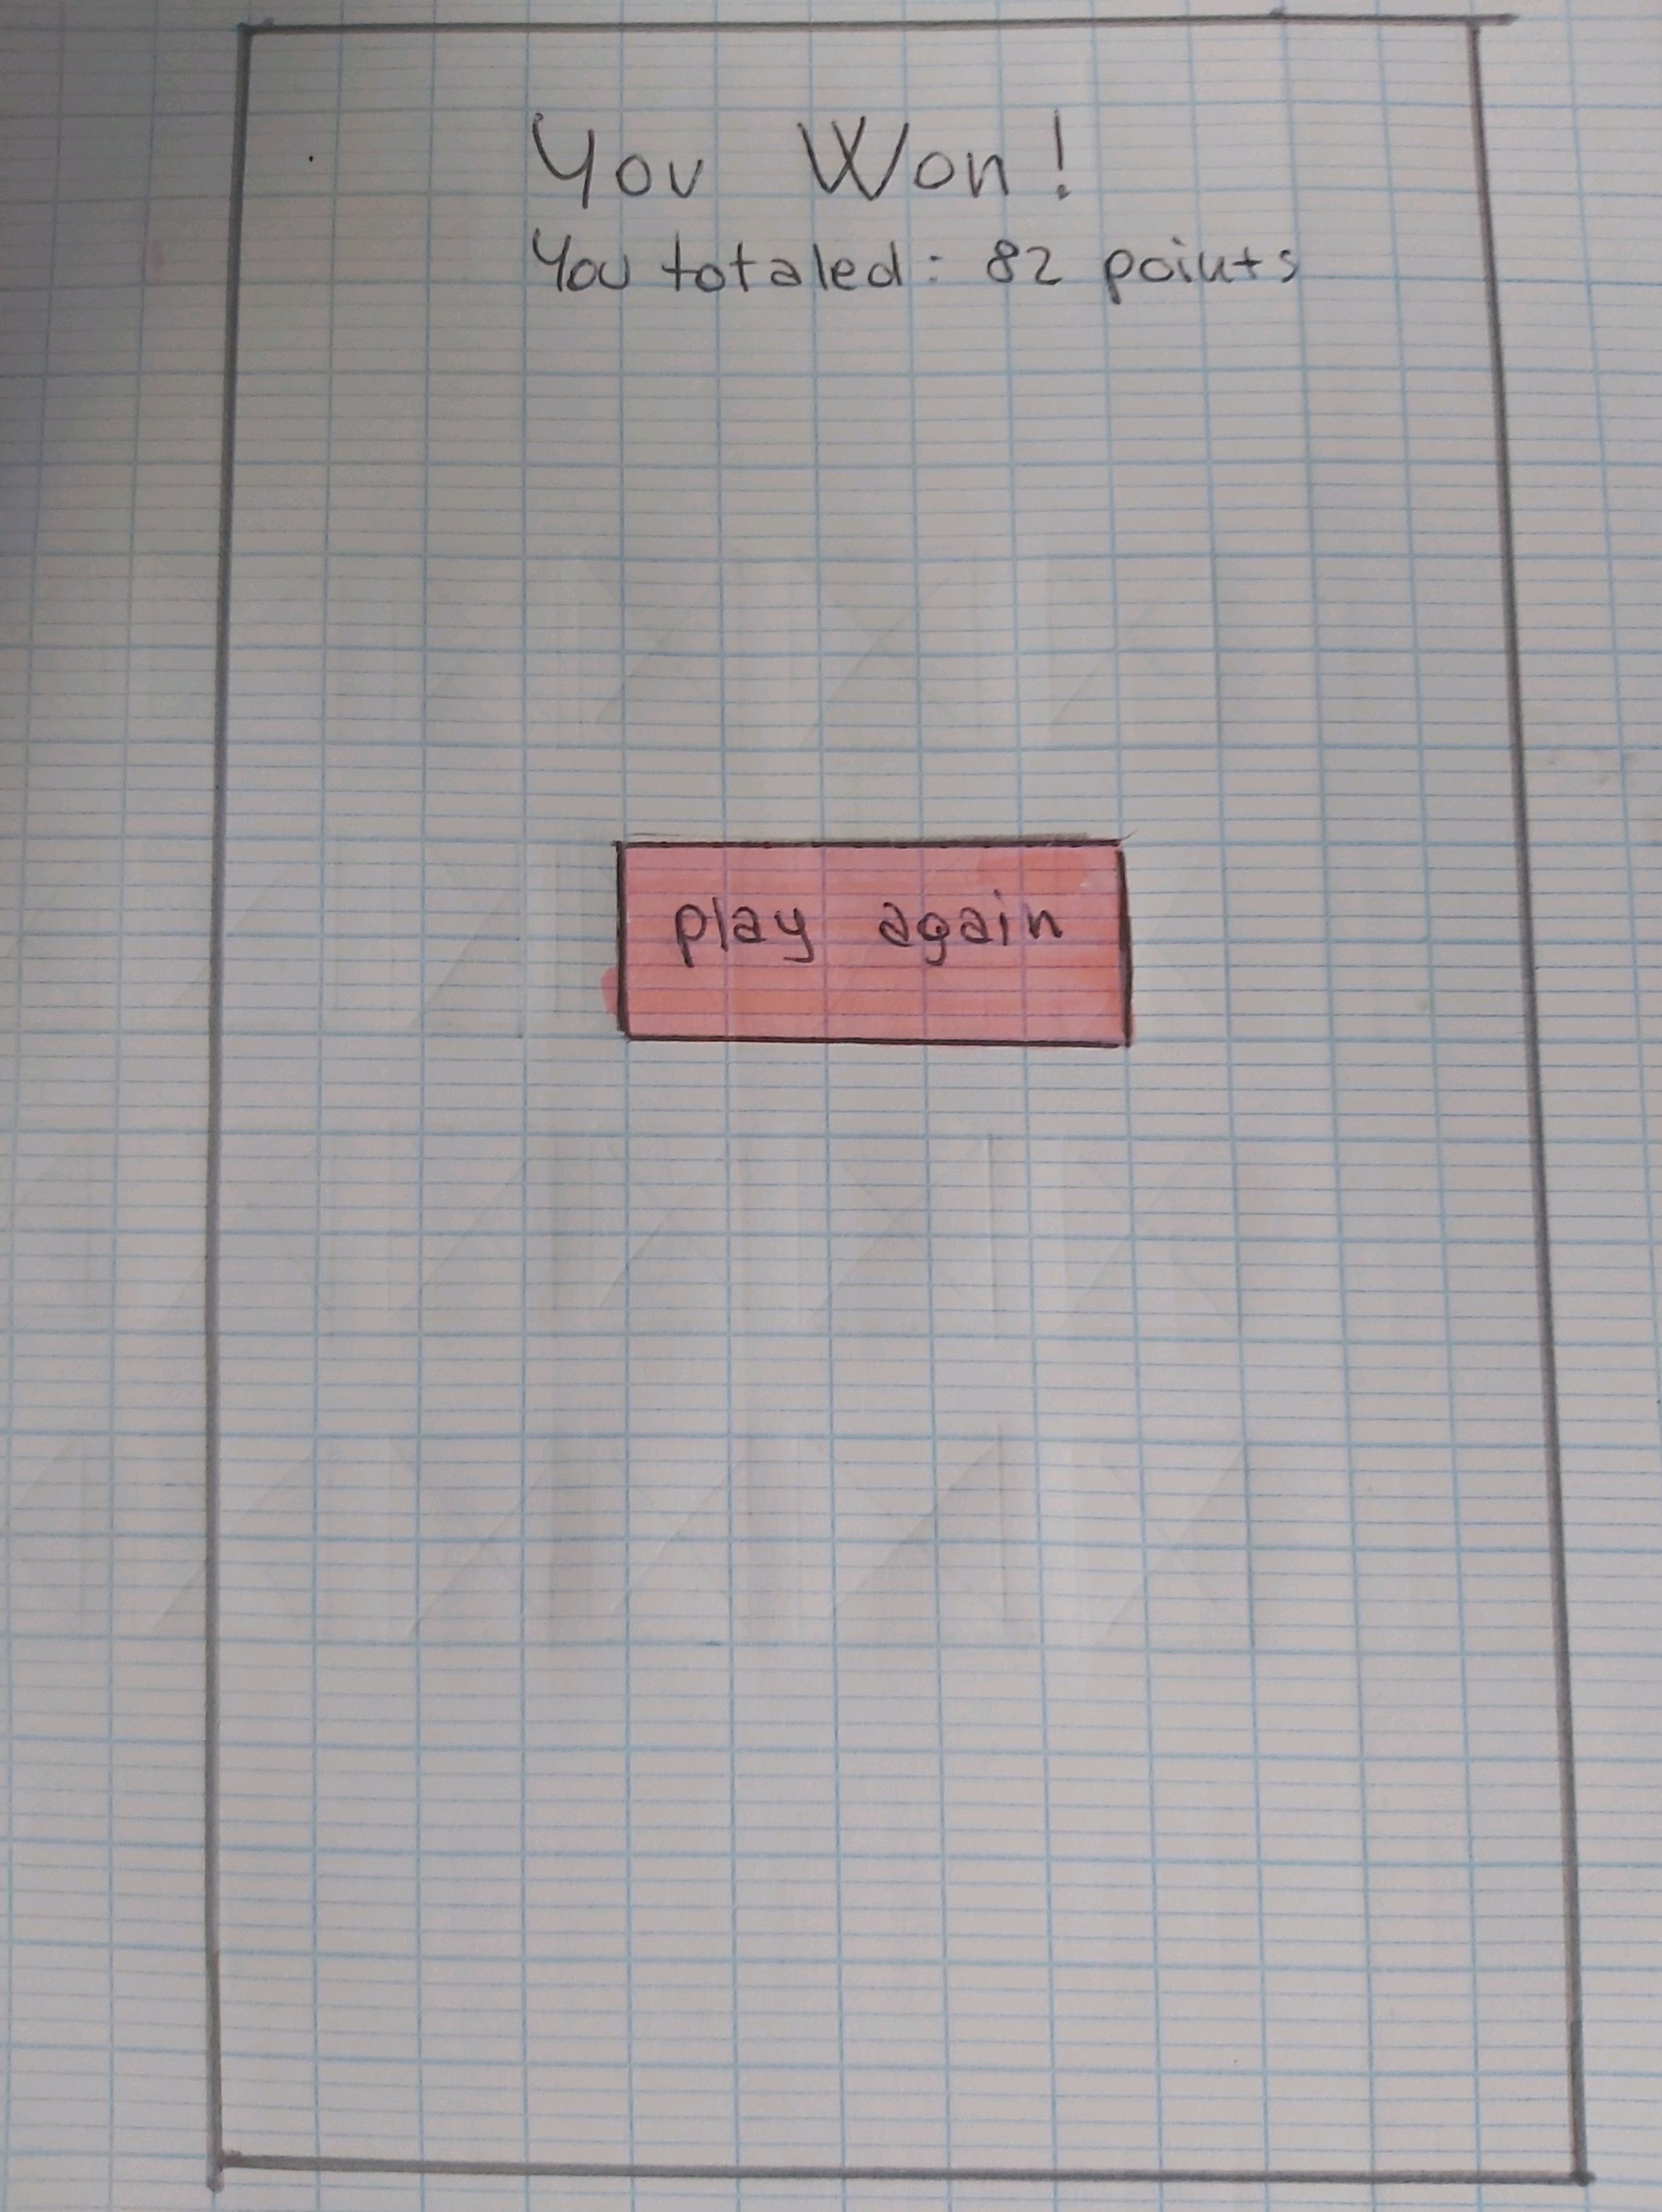 You Won!
You totaled: 82 points
play again